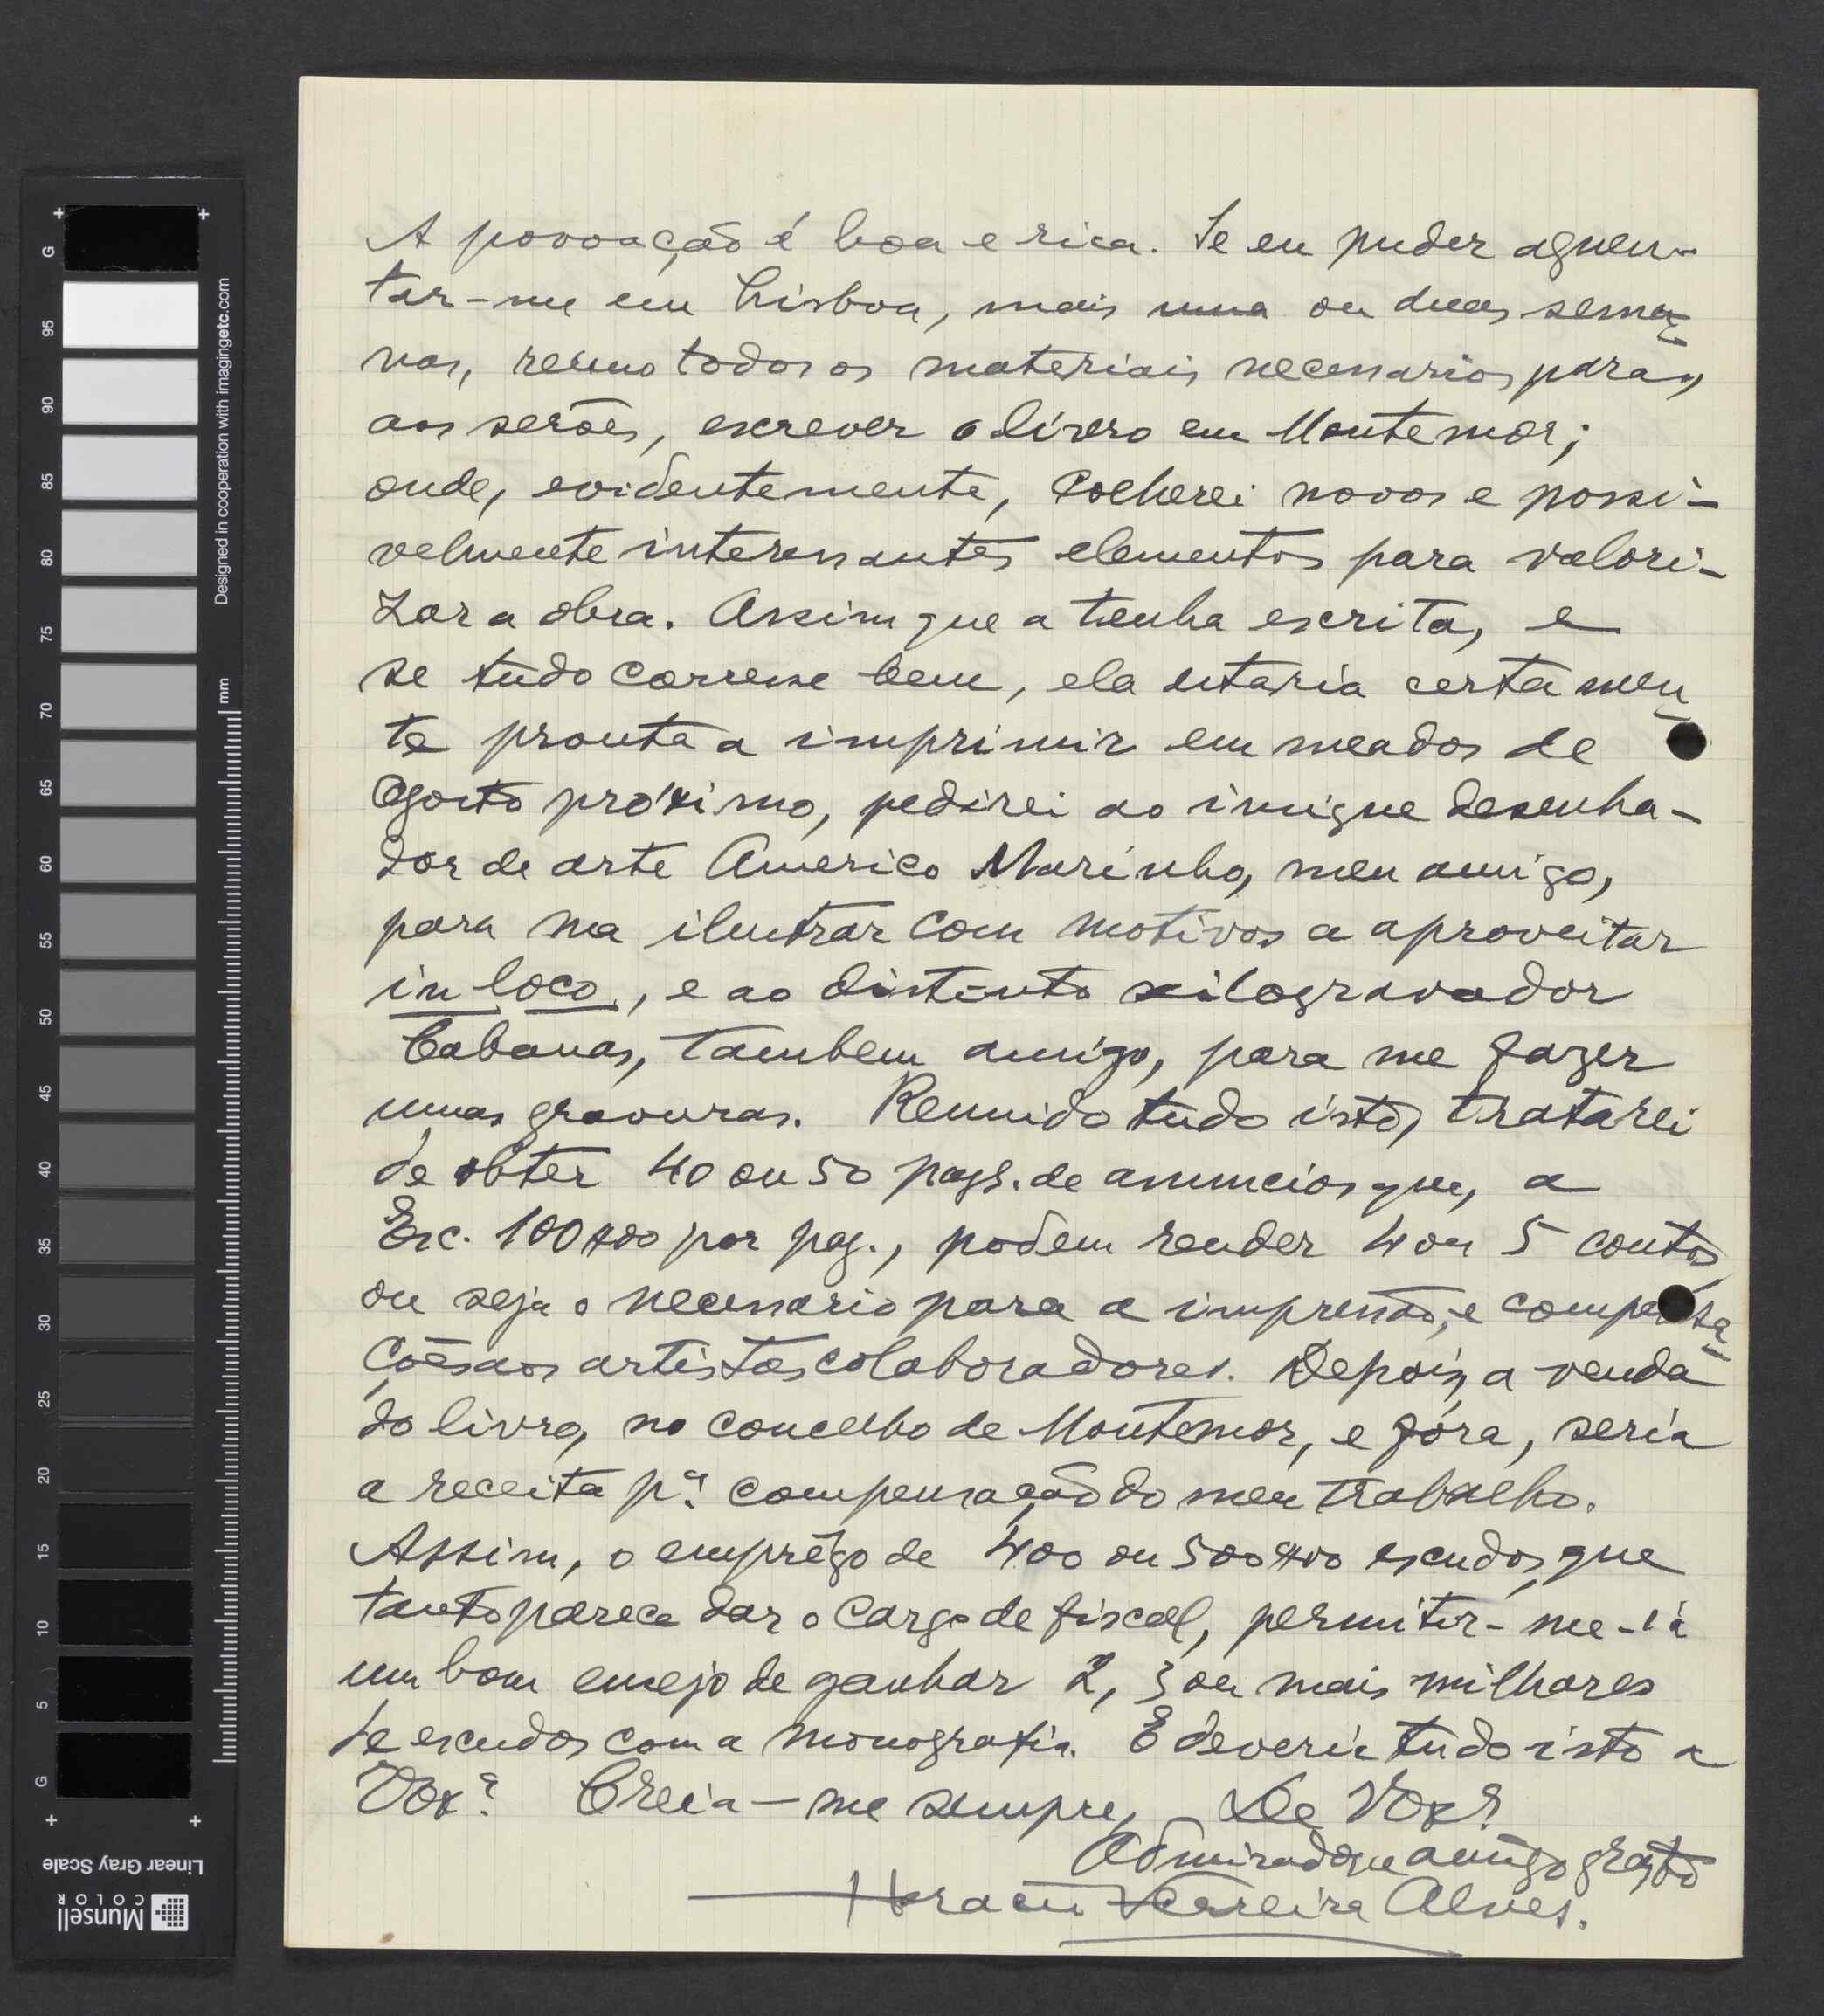 A povoação é boa e rica. Se eu puder aguen-
tar-me em Lisboa, mais uma ou duas sema-
nas, reuno todos os materiais necessarios para,
aos serões, escrever o livro em Montemor;
onde, evidentemente, colherei novos e possi-
velmente interessantes elementos para valori-
zar a obra. Assim que a tenha escrita, e
se tudo corresse bem, ela estaria certamen-
te pronta a imprimir em meados de
Agosto próximo, pedirei ao insigne desenha-
dor de arte Americo Marinho, meu amigo,
para ma ilustrar com motivos a aproveitar
in loco, e ao distinto xilogravador
Cabanas, tambem amigo, para me fazer
umas gravuras. Reunido tudo isto, tratarei
de obter 40 ou 50 pags. de anuncios que, a
Esc. 100$00 por pag., podem render 4 ou 5 contos,
ou seja o necessario para a impressão, e compensa-
ções aos artistas colaboradores. Depois, a venda
do livro, no concelho de Montemor, e fóra, seria
a receita pª. compensação do meu trabalho.
Assim, o emprêgo de 400 ou 500$00 escudos, que
tanto parece dar o cargo de fiscal, permitir-me-iá
um bom ensejo de ganhar 2, 3 ou mais milhares
de escudos com a monografia. E deveria tudo isto a
Vexª. Creia-me sempre, De Vexª
Admirador e amigo grato
Ferreira Alves.
Designed in cooperation with imagingetc.com
mm
G
95
90
85
80
75
70
65
60
55
50
45
40
35
30
25
20
15
10
5
G
Linear Gray Scale
Munsell
COLOR